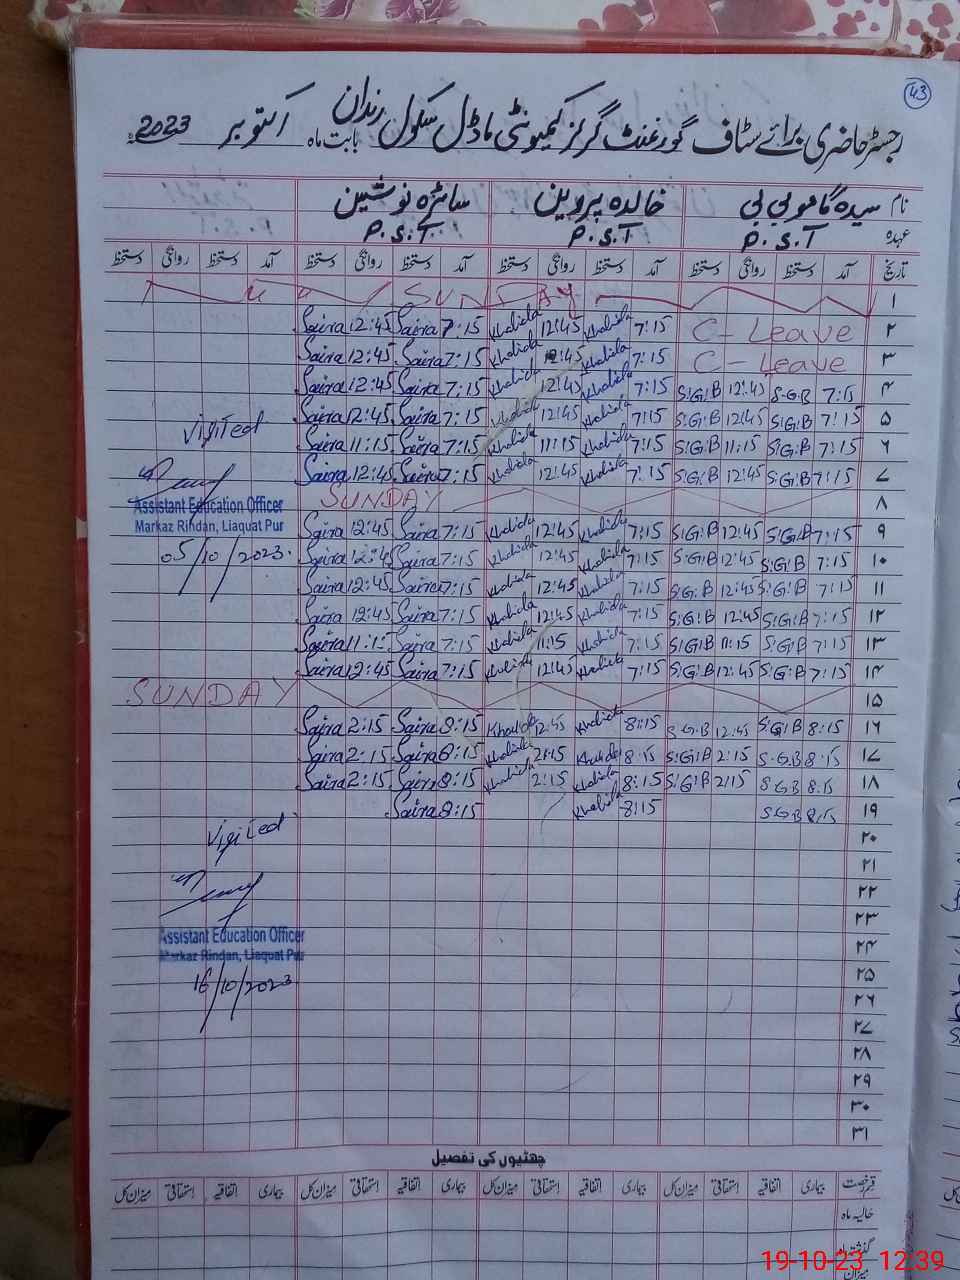 43
رجسٹر حاضری برائے سٹاف گورنمنٹ گرلز کمیونٹی ماڈل سکول رندان بابت ماہ اکتوبر 2023
نام سیدہ گامو بی بی خالدہ پروین سائرہ نوشین
عہدہ P.S.T P.S.T P.S.T
تاریخ آمد دستخط روانگی دستخط آمد دستخط روانگی دستخط آمد دستخط روانگی دستخط آمد دستخط روانگی دستخط
۱ SUNDAY
۲ C-Leave 7:15 Khalida 12:45 Khalida 7:15 Saira 12:45 Saira
۳ C-Leave 7:15 Khalida 12:45 Khalida 7:15 Saira 12:45 Saira
۴ 7:15 S.G.B 12:45 S.G.B 7:15 Khalida 12:45 Khalida 7:15 Saira 12:45 Saira
۵ 7:15 S.G.B 12:45 S.G.B 7:15 Khalida 12:45 Khalida 7:15 Saira 12:45 Saira
Visited
۶ 7:15 S.G.B 11:15 S.G.B 7:15 Khalida 11:15 Khalida 7:15 Saira 11:15 Saira
۷ 7:15 S.G.B 12:45 S.G.B 7:15 Khalida 12:45 Khalida 7:15 Saira 12:45 Saira
۸ SUNDAY
Assistant Education Officer
Markaz Rindan, Liaquat Pur
05/10/2023
۹ 7:15 S.G.B 12:45 S.G.B 7:15 Khalida 12:45 Khalida 7:15 Saira 12:45 Saira
۱۰ 7:15 S.G.B 12:45 S.G.B 7:15 Khalida 12:45 Khalida 7:15 Saira 12:45 Saira
۱۱ 7:15 S.G.B 12:45 S.G.B 7:15 Khalida 12:45 Khalida 7:15 Saira 12:45 Saira
۱۲ 7:15 S.G.B 12:45 S.G.B 7:15 Khalida 12:45 Khalida 7:15 Saira 12:45 Saira
۱۳ 7:15 S.G.B 11:15 S.G.B 7:15 Khalida 11:15 Khalida 7:15 Saira 11:15 Saira
۱۴ 7:15 S.G.B 12:45 S.G.B 7:15 Khalida 12:45 Khalida 7:15 Saira 12:45 Saira
۱۵ SUNDAY
۱۶ 8:15 S.G.B 12:45 S.G.B 8:15 Khalida 12:45 Khalida 8:15 Saira 2:15 Saira
۱۷ 8:15 S.G.B 2:15 S.G.B 8:15 Khalida 2:15 Khalida 8:15 Saira 2:15 Saira
۱۸ 8:15 S.G.B 2:15 S.G.B 8:15 Khalida 2:15 Khalida 8:15 Saira 2:15 Saira
۱۹ 8:15 S.G.B 8:15 Khalida 8:15 Saira
۲۰
Visited
۲۱
۲۲
۲۳
۲۴
Assistant Education Officer
Markaz Rindan, Liaquat Pur
16/10/2023
۲۵
۲۶
۲۷
۲۸
۲۹
۳۰
۳۱
چھٹیوں کی تفصیل
قسم رخصت بیماری اتفاقیہ استحقاقی میزان کل بیماری اتفاقیہ استحقاقی میزان کل بیماری اتفاقیہ استحقاقی میزان کل بیماری اتفاقیہ استحقاقی میزان کل
حالیہ ماہ
گذشتہ ماہ
میزان
19-10-23 12:39